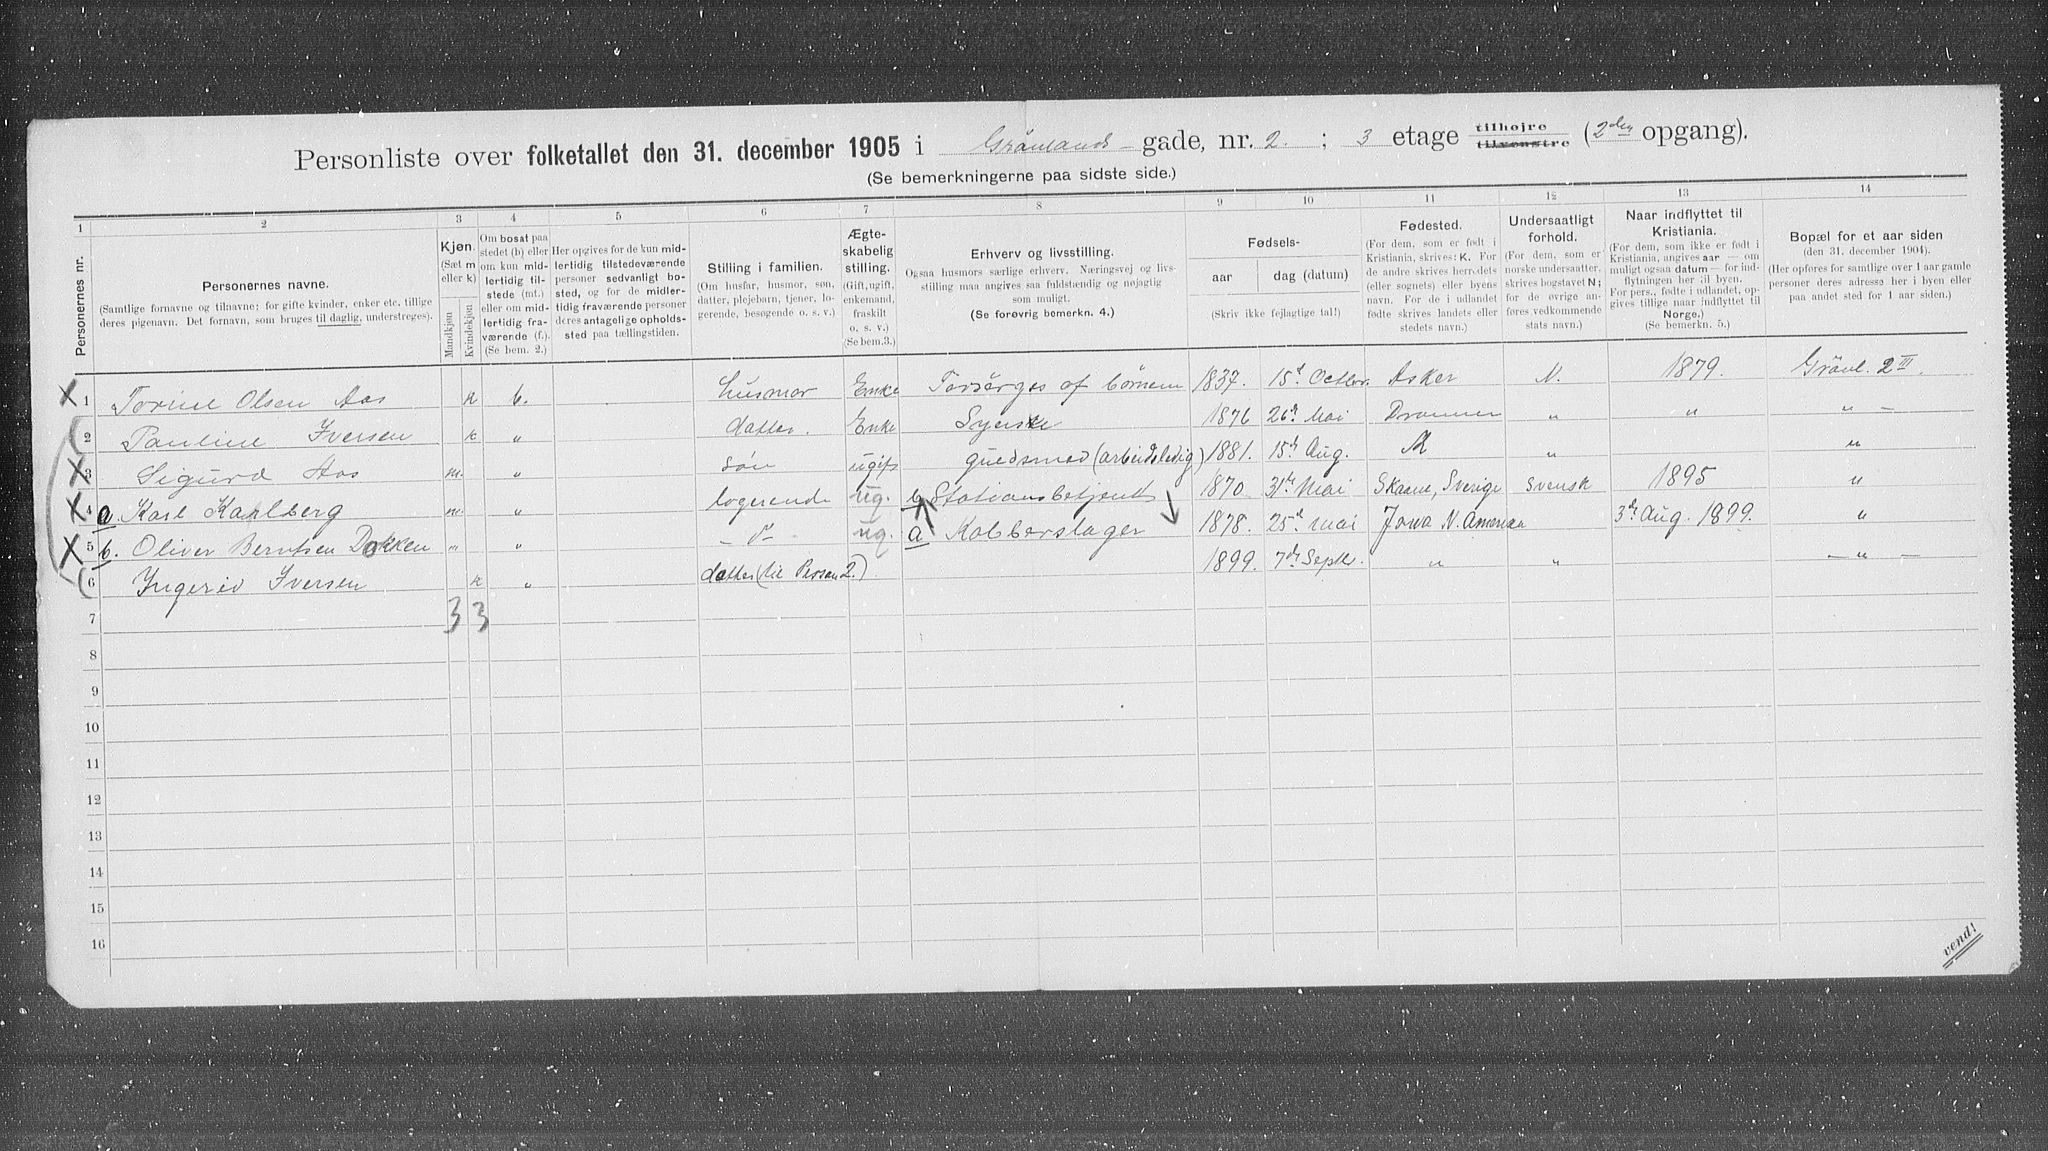 Personliste over folketallet den 31. december 1905 i Grønlands gade, nr. 2. ; 3 etage tilhøjre tilvenstre (2den opgang).
(Se bemerkningerne paa sidste side.)
1 2 3 4 5 6 7 8 9 10 11 12 13 14
Personernes nr.
Personernes navne.
(Samtlige fornavne og tilnavne; for gifte kvinder, enker etc. tillige
deres pigenavn. Det fornavn, som bruges til daglig, understreges).
Kjøn.
(Sæt m
eller k)
Mandkjøn
Kvindekjøn
Om bosat paa
stedet (b) eller
om kun mid-
lertidig til-
stede (mt.)
eller om mid-
lertidig fra-
værende (f.).
(Se bem. 2.)
Her opgives for de kun mid-
lertidig tilstedeværende
personer sedvanlig bo-
sted, og for de midler-
tidig fraværende personer
deres antagelige opholds-
sted paa tællingstiden.
Stilling i familien.
(Om husfar, husmor, søn,
datter, plejebarn, tjener, lo-
gerende, besøgende o. s. v.)
Ægte-
skabelig
stilling.
(Gift, ugift,
enkemand,
fraskilt
o. s. v.)
(Se bem. 3.)
Erhverv og livsstilling.
Ogsaa husmors særlige erhverv. Næringsvej og livs-
stilling maa angives saa fuldstændig og nøjagtig
som muligt.
(Se forøvrig bemerkn. 4.)
Fødsels-
aar dag (datum)
(Skriv ikke fejlagtige tal!)
Fødested.
(For dem, som er født i
Kristiania, skrives: K. For
de andre skrives herredets
(eller sognets) eller byens
navn. For de i udlandet
fødte skrives landets eller
stedets navn.)
Undersaatligt
forhold.
(For dem, som er
norske undersaatter,
skrives bogstavet N;
for de øvrige an-
føres vedkommende
stats navn.)
Naar indflyttet til
Kristiania.
(For dem, som ikke er født i
Kristiania, angives aar — om
muligt ogsaa datum — for ind-
flytningen her til byen.
For pers., fødte i udlandet, op-
gives tillige naar indflyttet til
Norge.)
(Se bemerkn. 5.)
Bopæl for et aar siden
(den 31. december 1904).
(Her opføres for samtlige over 1 aar gamle
personer deres adresse her i byen eller
paa andet sted for 1 aar siden.)
X 1 Torine Olsen Aas k b. Husmor Enke Forsørges af børnene 1837. 15d Octbr. Asker N. 1879. Grönl. 2 III.
2 Pauline Iversen k " datter. Enke Syerske 1876 26de Mai Drammen " " " —
X 3 Sigurd Aas m. " søn ugift guldsmed (arbeidsledig) 1881. 15de Aug. " "
X 4 a. Karl Karlberg m. " logerende ug. b Stationsbetjent 1870 31te Mai Skaane, Sverige svensk 1895 "
X 5 b. Oliver Berntsen Dokken " " — " — ug. a Kobberslager 1878. 25de mai Jowa N. Amerika 3de Aug. 1899. "
6 Ingerid Iversen k " datter (til Person 2.) 1899. 7de Septbr. " " — " —
7 3 3
8
9
10
11
12
13
14
15
16
vend!